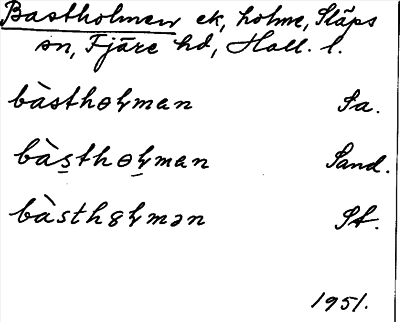 Bastholmen ek, holme, Släps
sn, Fjäre hd, Hall. l.
bàsthoɫman Sa.
bàs̱thoɫ̱man Sand.
bàsthȣɫmən St.
1951.